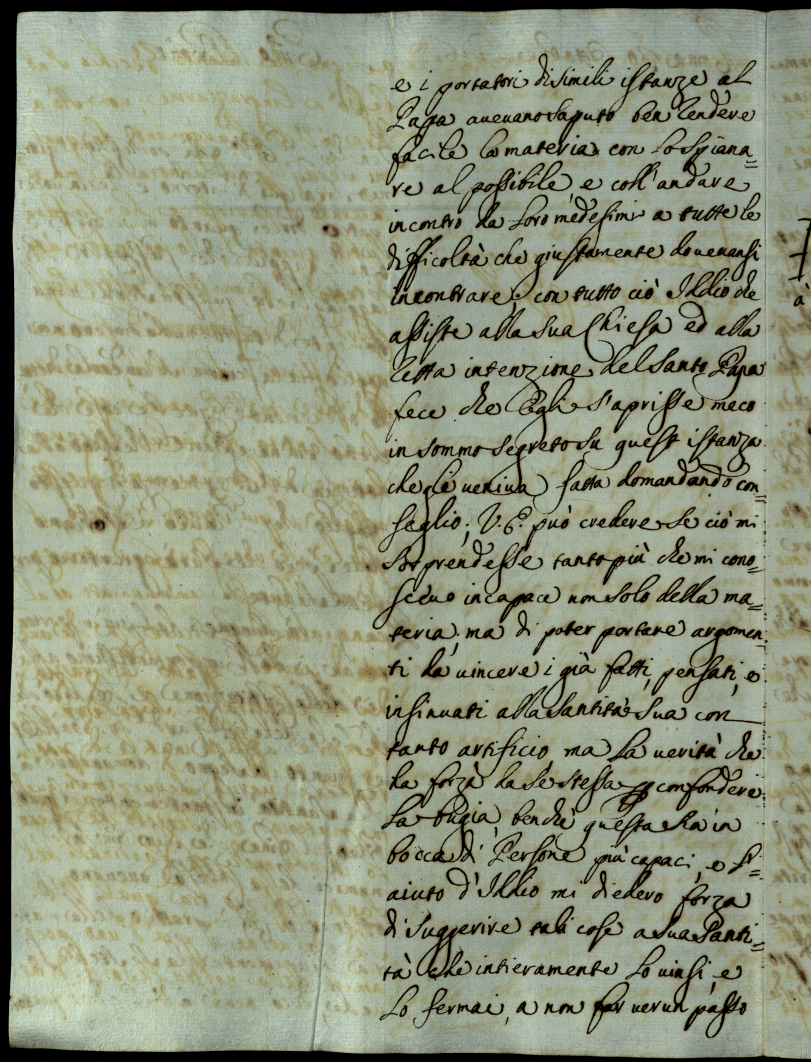 e i portatori di simili istanze al
Papa aueuano saputo ben rendere
facile la materia con lo spiana=
re al possibile, e coll'andare
incontro da loro medesimi a tutte le
difficoltà che giustamente doueuansi
incontrare; con tutto ciò Iddio che
assiste alla sua Chiesa ed alla
retta intenzione del Santo Papa
fece che Egli s'aprisse meco
in sommo segreto su quest'istanza
che gli ueniua fatta domandando con=
seglio; V. E. può credere se ciò mi
sorprendesse tanto più che mi cono=
sceuo incapace non solo della ma=
teria, ma di poter portare argomen
ti da uincere i già fatti, pensati, e
insinuati alla Santità Sua con
tanto artificio ma la uerità che
ha forza da se stessa p confondere
la bugia, benche questa sia in
bocca di Persone più capaci, e l'=
aiuto d'Iddio mi diedero forza
di suggerire tali cose a Sua Santi=
tà che intieramente lo uinsi, e
lo fermai, a non far uerun passo